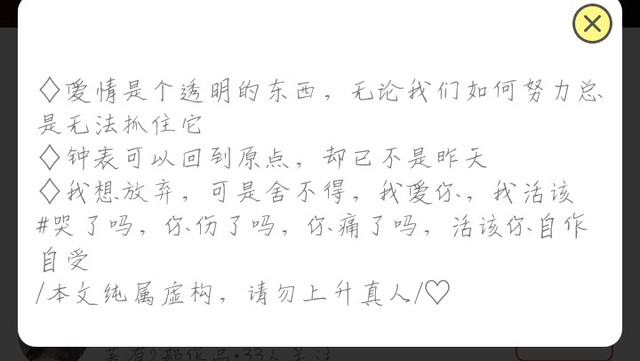 ◇愛情是个透明的东西，无论我们如何努力总
是无法抓住它
◇钟表可以回到原点，却已不是昨天
◇我想放弃，可是舍不得，我愛你，我活该
#哭了吗，你伤了吗，你痛了吗，活该你自作
自受
/本文纯属虚构，请勿上升真人/♡